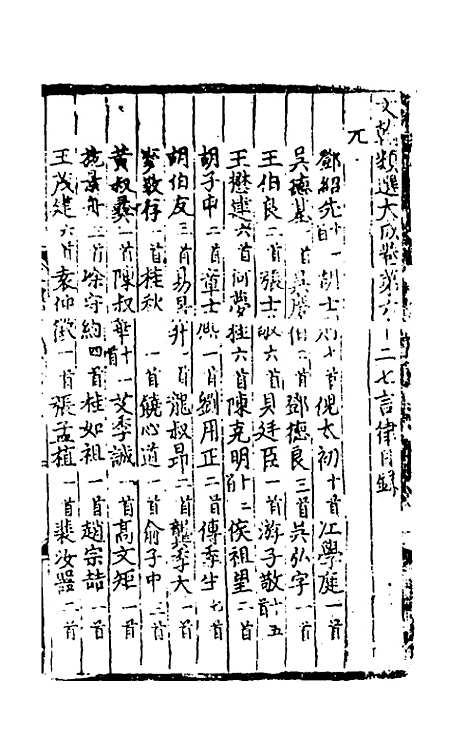 文翰類選大成卷第六十二七言律目錄
元
鄧紹先十一首胡士 七首倪太初十首江學庭一首
吳德基一首吳 伯二首鄧德良三首吳弘字一首
王伯良二首張士 六首貝廷臣一首游子敬十五首
王懋 六首何夢桂六首陳克明十二首侯祖望二首
胡子中二首董士 一首劉用正二首傅季生七首
胡伯友三首易 升一首龍叔昂二首龔季大一首
李致存一首桂秋 一首饒心道一首俞子中三首
黃叔彝一首陳叔華十一首艾季誠一首高文矩一首
 舟二首徐守約四首桂如祖一首趙宗喆一首
王茂建六首袁仲徵一首張孟植一首裴汝器二首